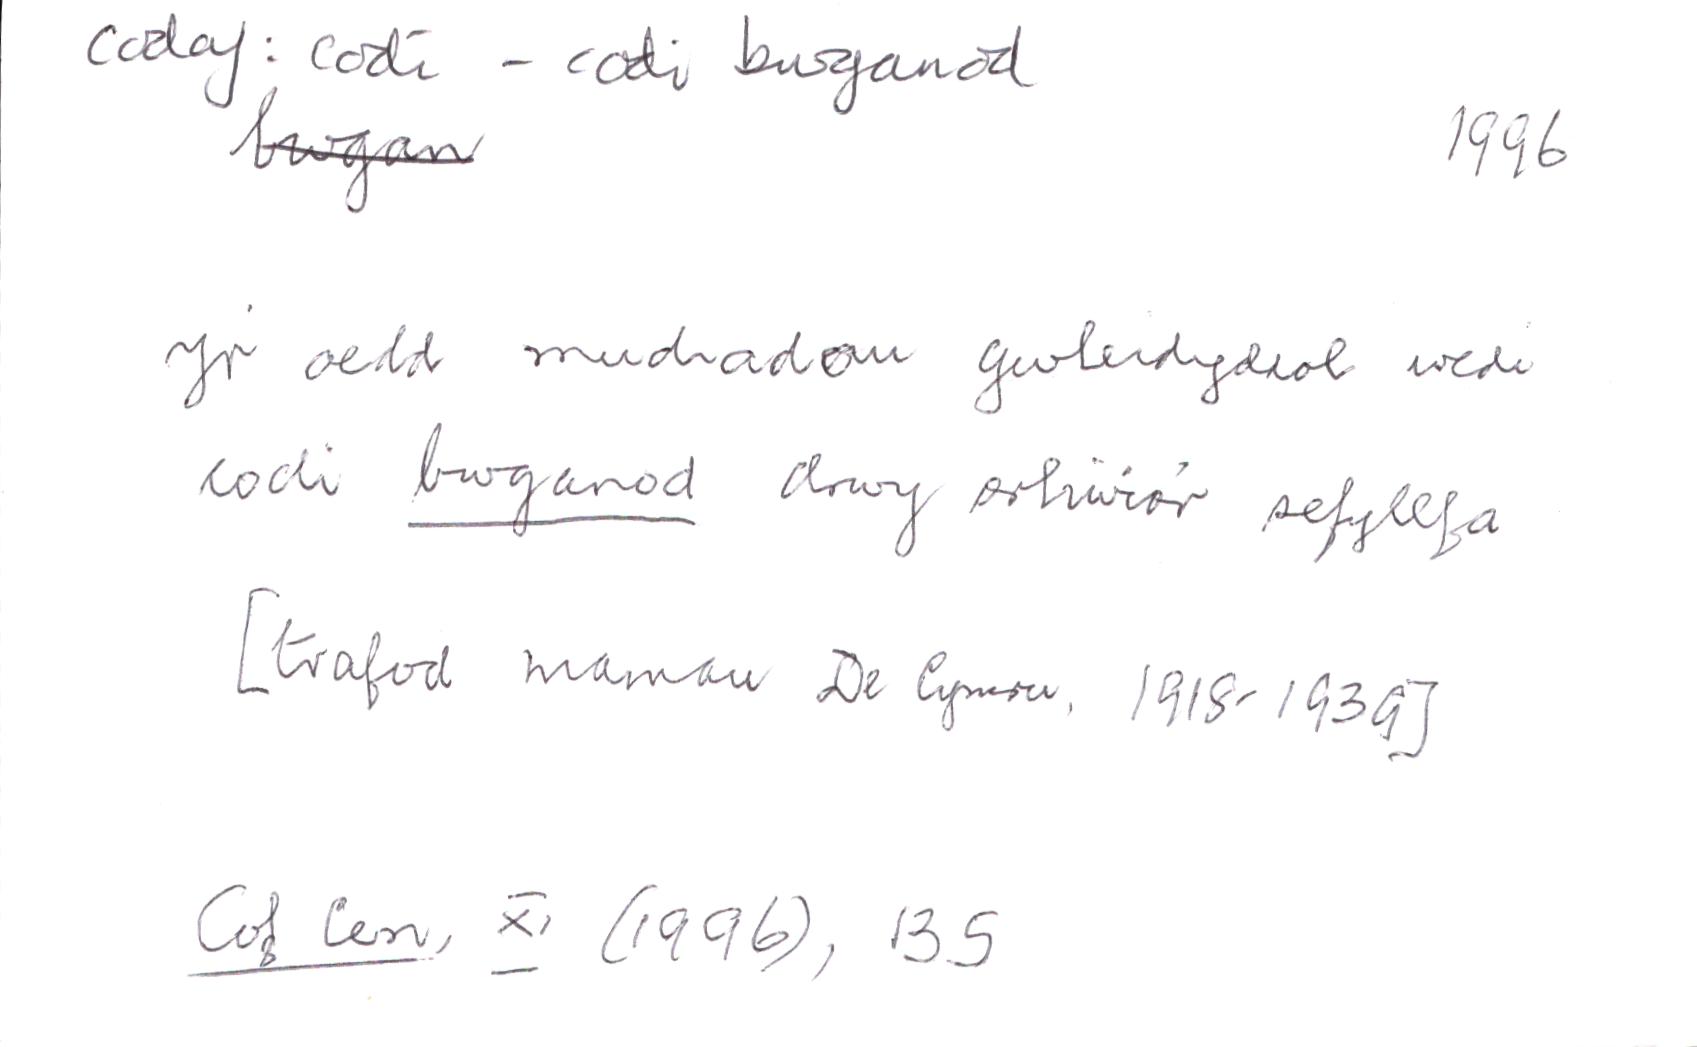 codaf: codi - codi bwganod
bwgan
1996
Yr oedd mudiadau gwleidyddol wedi
codi bwganod drwy orliwio'r sefyllfa
[trafod mamau De Cymru, 1918-1939]
Cof Cen, XI (1996), 135